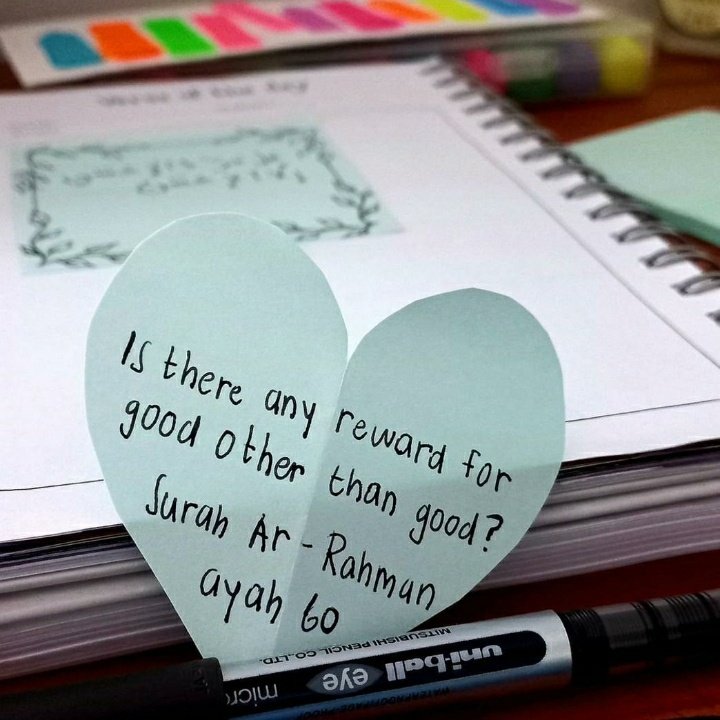 Is there any reward for
good other than good?
Surah Ar-Rahman
ayah 60
MITSUBISHI PENCIL CO.,LTD.
uni-ball eye micro